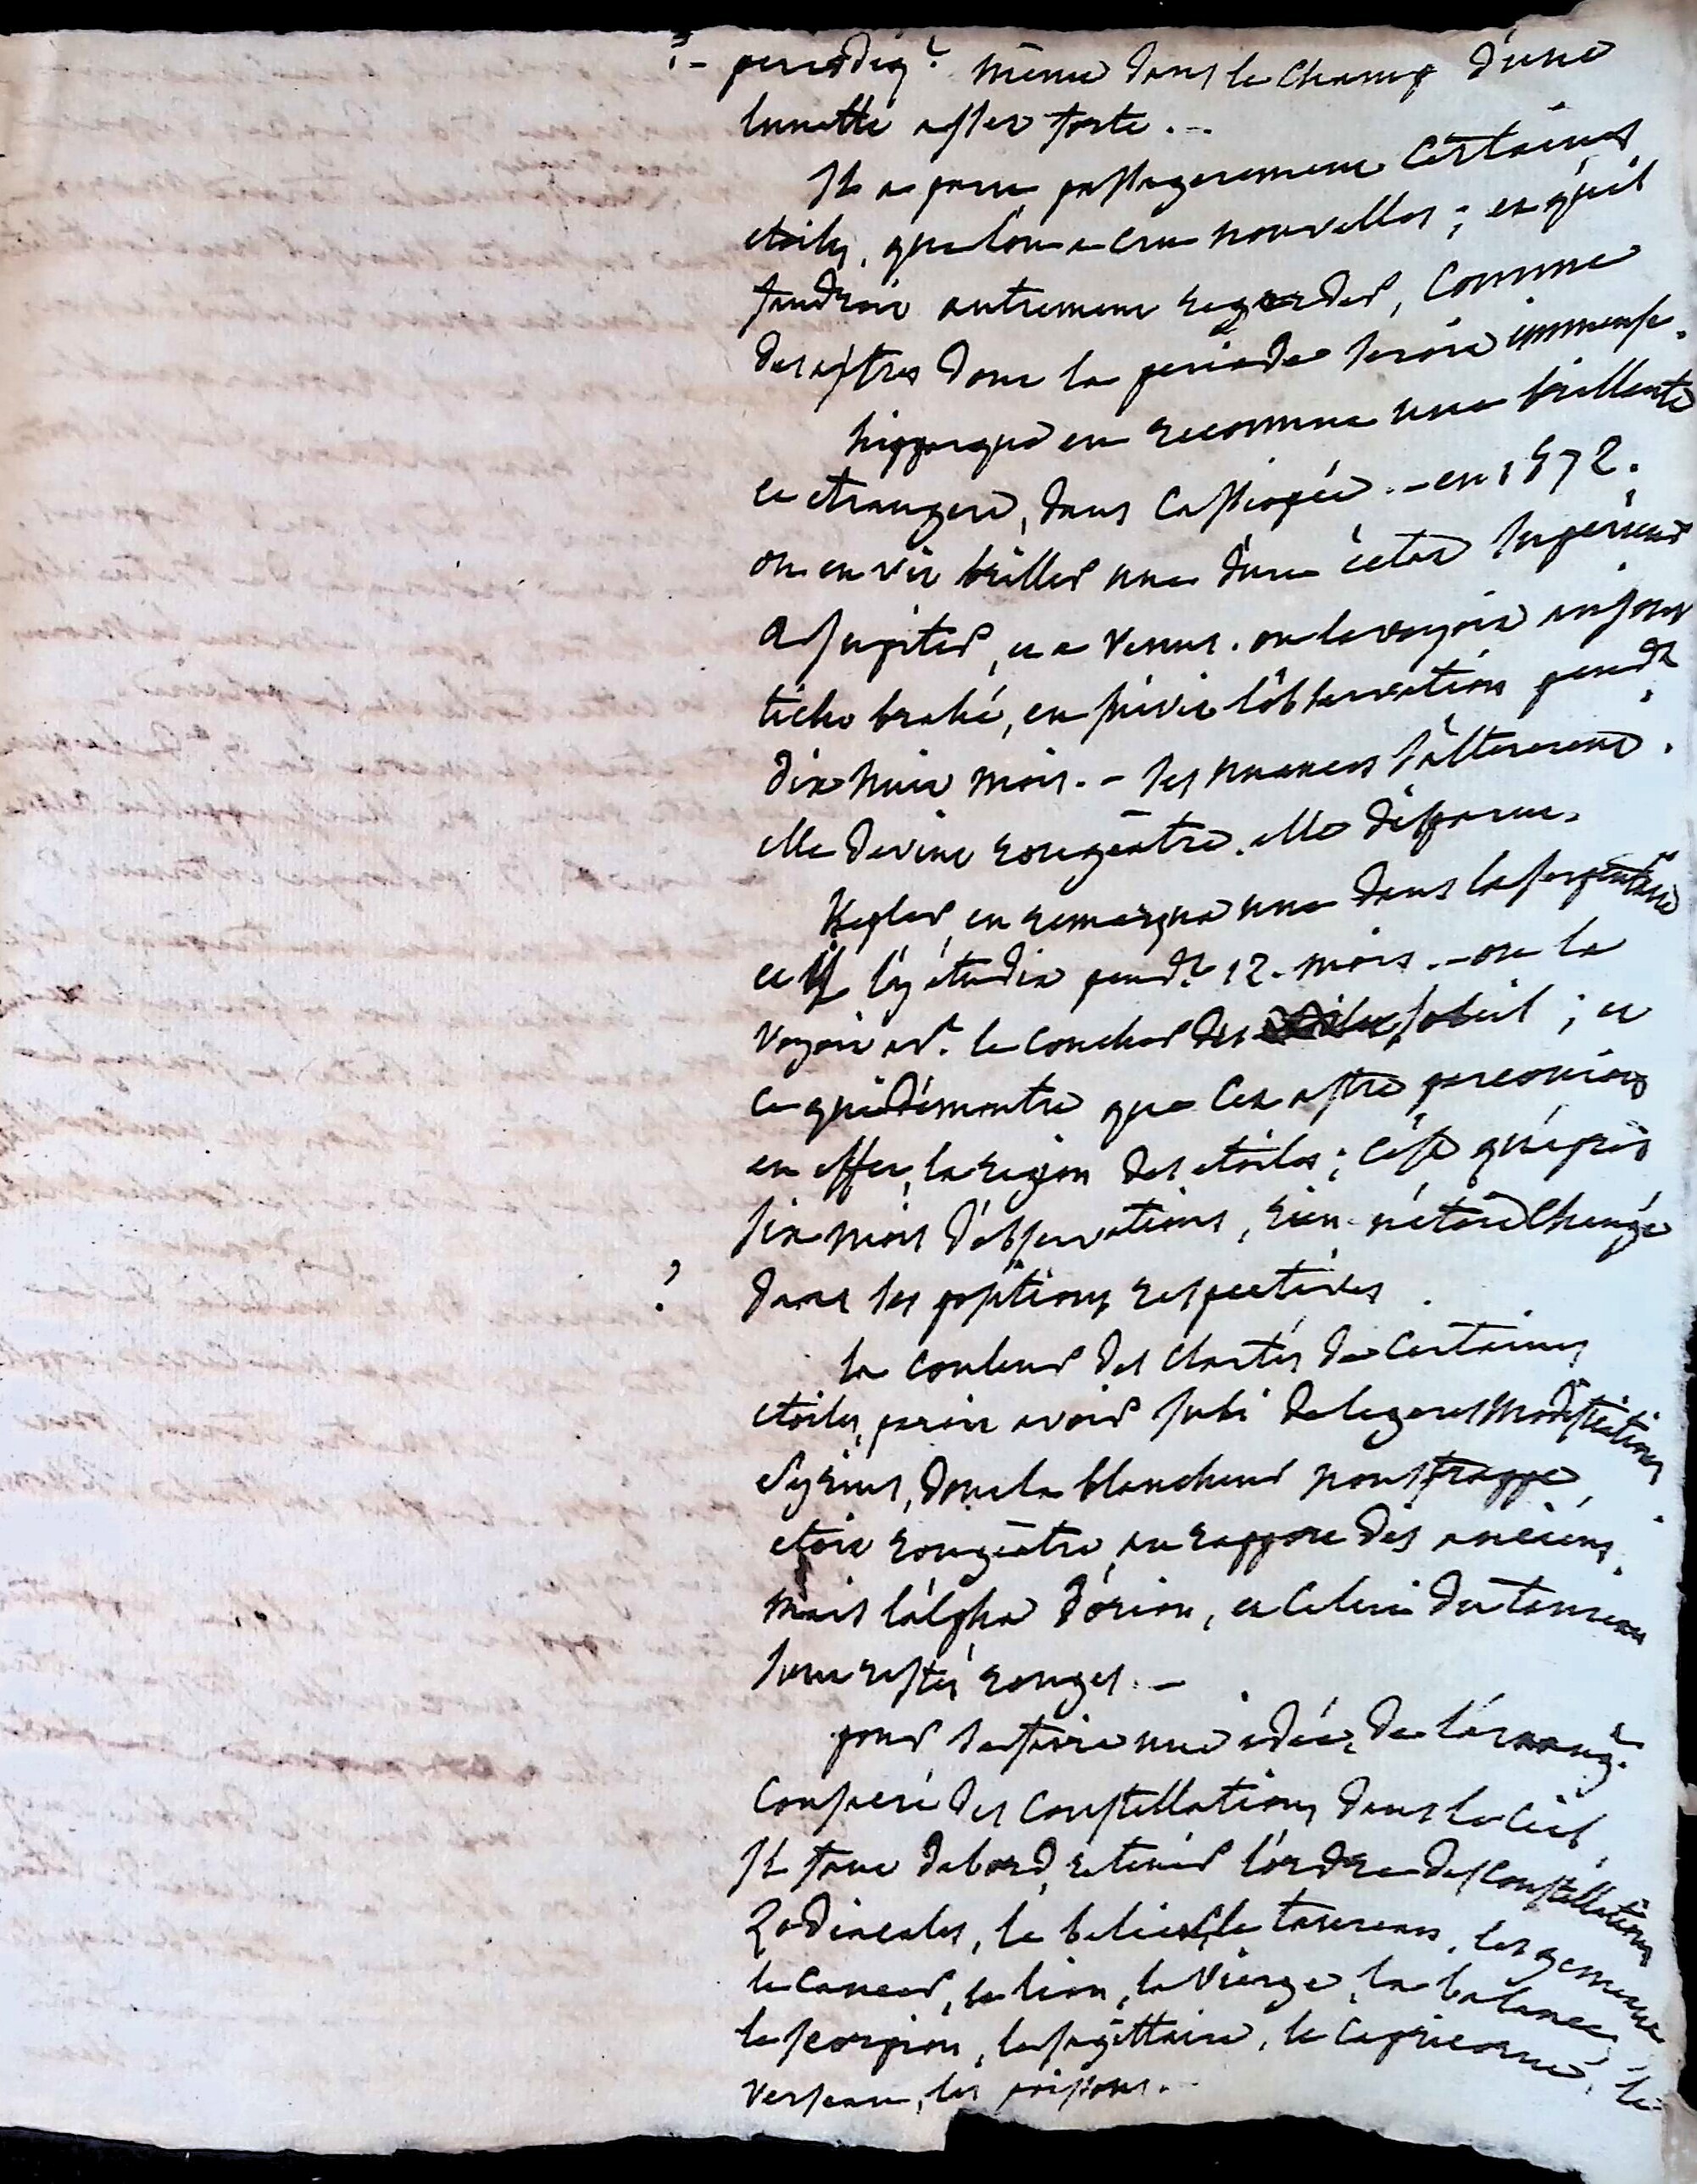 ?- periodiq.t même dans le champ d'une
lunette assés forte. -.
Il a paru passagerement certaines
etoiles, que l'on a cru nouvelles ; et qu'il
faudroit autrement regarder, comme
des astres dont la periode seroit immense.
hipparque en reconnut une brillante
et etrangere, dans Cassiopée. - en 1572.
on en vit briller une d'un éclat superieur
a Jupiter, et a Venus. on la voyoit au jour
ticho brahé, en suivit l'observation pend.t
dix huit mois. - ses nuances s'altererent.
elle devint rougeâtre. elle disparut.
Kepler, en remarqua une dans le serpentaire
et il l'y étudia pend.t 12. mois. - on la
voyoit av.t le coucher du soleil ; et
ce qui démontre que cet astre parcouroit
en effet, la region des etoiles ; c'est qu'après
six mois d'observations, rien n'étoit changé
? dans ses positions respectives.
la couleur des clartés de certaines
etoiles, paroit avoir subi de legeres modifications
Syrius, dont la blancheur nous frappe
etoit rougeâtre, au rapport des anciens.
mais l'alpha d'orion, et celui du taureau
sont restés rouges. -
pour se faire une idée, de l'arrang.t
conservé des constellations dans le ciel,
Il faut d'abord, retenir l'ordre des constellations
Zodiacales, le belier, le taureau, les gemeaux
le cancer, le lion, la Vierge, la balance,
le scorpion, le sagittaire, le capricorne, le
verseau, les poissons. -